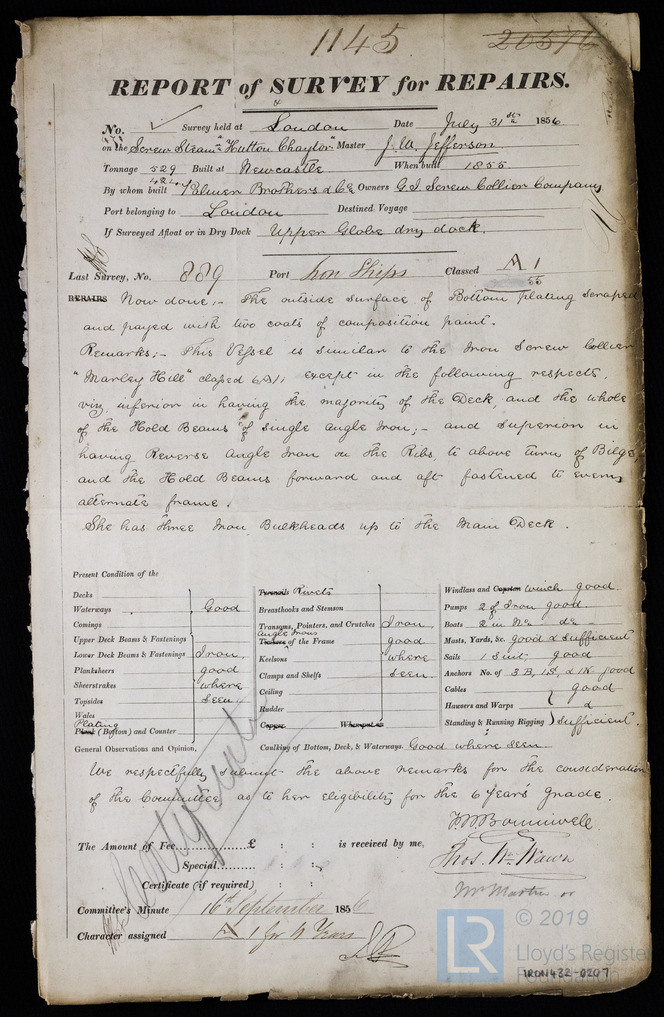 1145
20576
REPORT of SURVEY for REPAIRS.
No. Survey held at London Date July 31st 1856
on the Screw Steamr "Hutton Chaytor" Master J. W. Jefferson
Tonnage 529 Built at Newcastle When built 1855
424
By whom built Palmer Brothers & Co Owners G. I. Screw Collier Company
Port belonging to London Destined Voyage
If Surveyed Afloat or in Dry Dock Upper Globe dry dock.
Last Survey, No. 889 Port Iron Ships Classed A 1
55
REPAIRS Now done;- The outside surface of Bottom plating scraped
and payed with two coats of composition paint.
Remarks;- This Vessel is similar to the Iron Screw Collier
"Marley Hill" classed 6A1, except in the following respects,
viz, inferior in having the majority of the Deck, and the whole
of the Hold Beams of single Angle Iron;- and superior in
having Reverse Angle Iron on the Ribs, to above turn of Bilge,
and the Hold Beams forward and aft fastened to every
alternate frame.
She has three Iron Bulkheads up to the Main Deck.
Present Condition of the
Decks
Waterways Good
Comings
Upper Deck Beams & Fastenings
Lower Deck Beams & Fastenings Iron
Planksheers good
Sheerstrakes where
Topsides seen
Wales
Plating
Plank (Bottom) and Counter
Treenails Rivets
Breasthooks and Stemson
Transoms, Pointers, and Crutches Iron
Angle Irons
Timbers of the Frame good
Keelsons where
Clamps and Shelfs seen
Ceiling
Rudder
Copper When put on
Windlass and Capstan winch good
Pumps 2 of Iron good
Boats 2 in No do
Masts, Yards, &c. good & sufficient
Sails 1 Suit, good
Anchors No. of 3 B, 1 S, & 1 K good
Cables good
Hawsers and Warps &
Standing & Running Rigging sufficient.
General Observations and Opinion, Caulking of Bottom, Deck, & Waterways. Good where seen
We respectfully submit the above remarks for the consideration
of the Committee, as to her eligibility for the 6 Years grade.
The Amount of Fee £ : : is received by me,
Special : :
Certificate (if required) : :
Thos. Wm. Wawn
Mr Martin or
Committee's Minute 16th September 1856
Character assigned A 1 for 4 Years
LR
© 2019
Lloyd's Register
Foundation
IRON432-0207